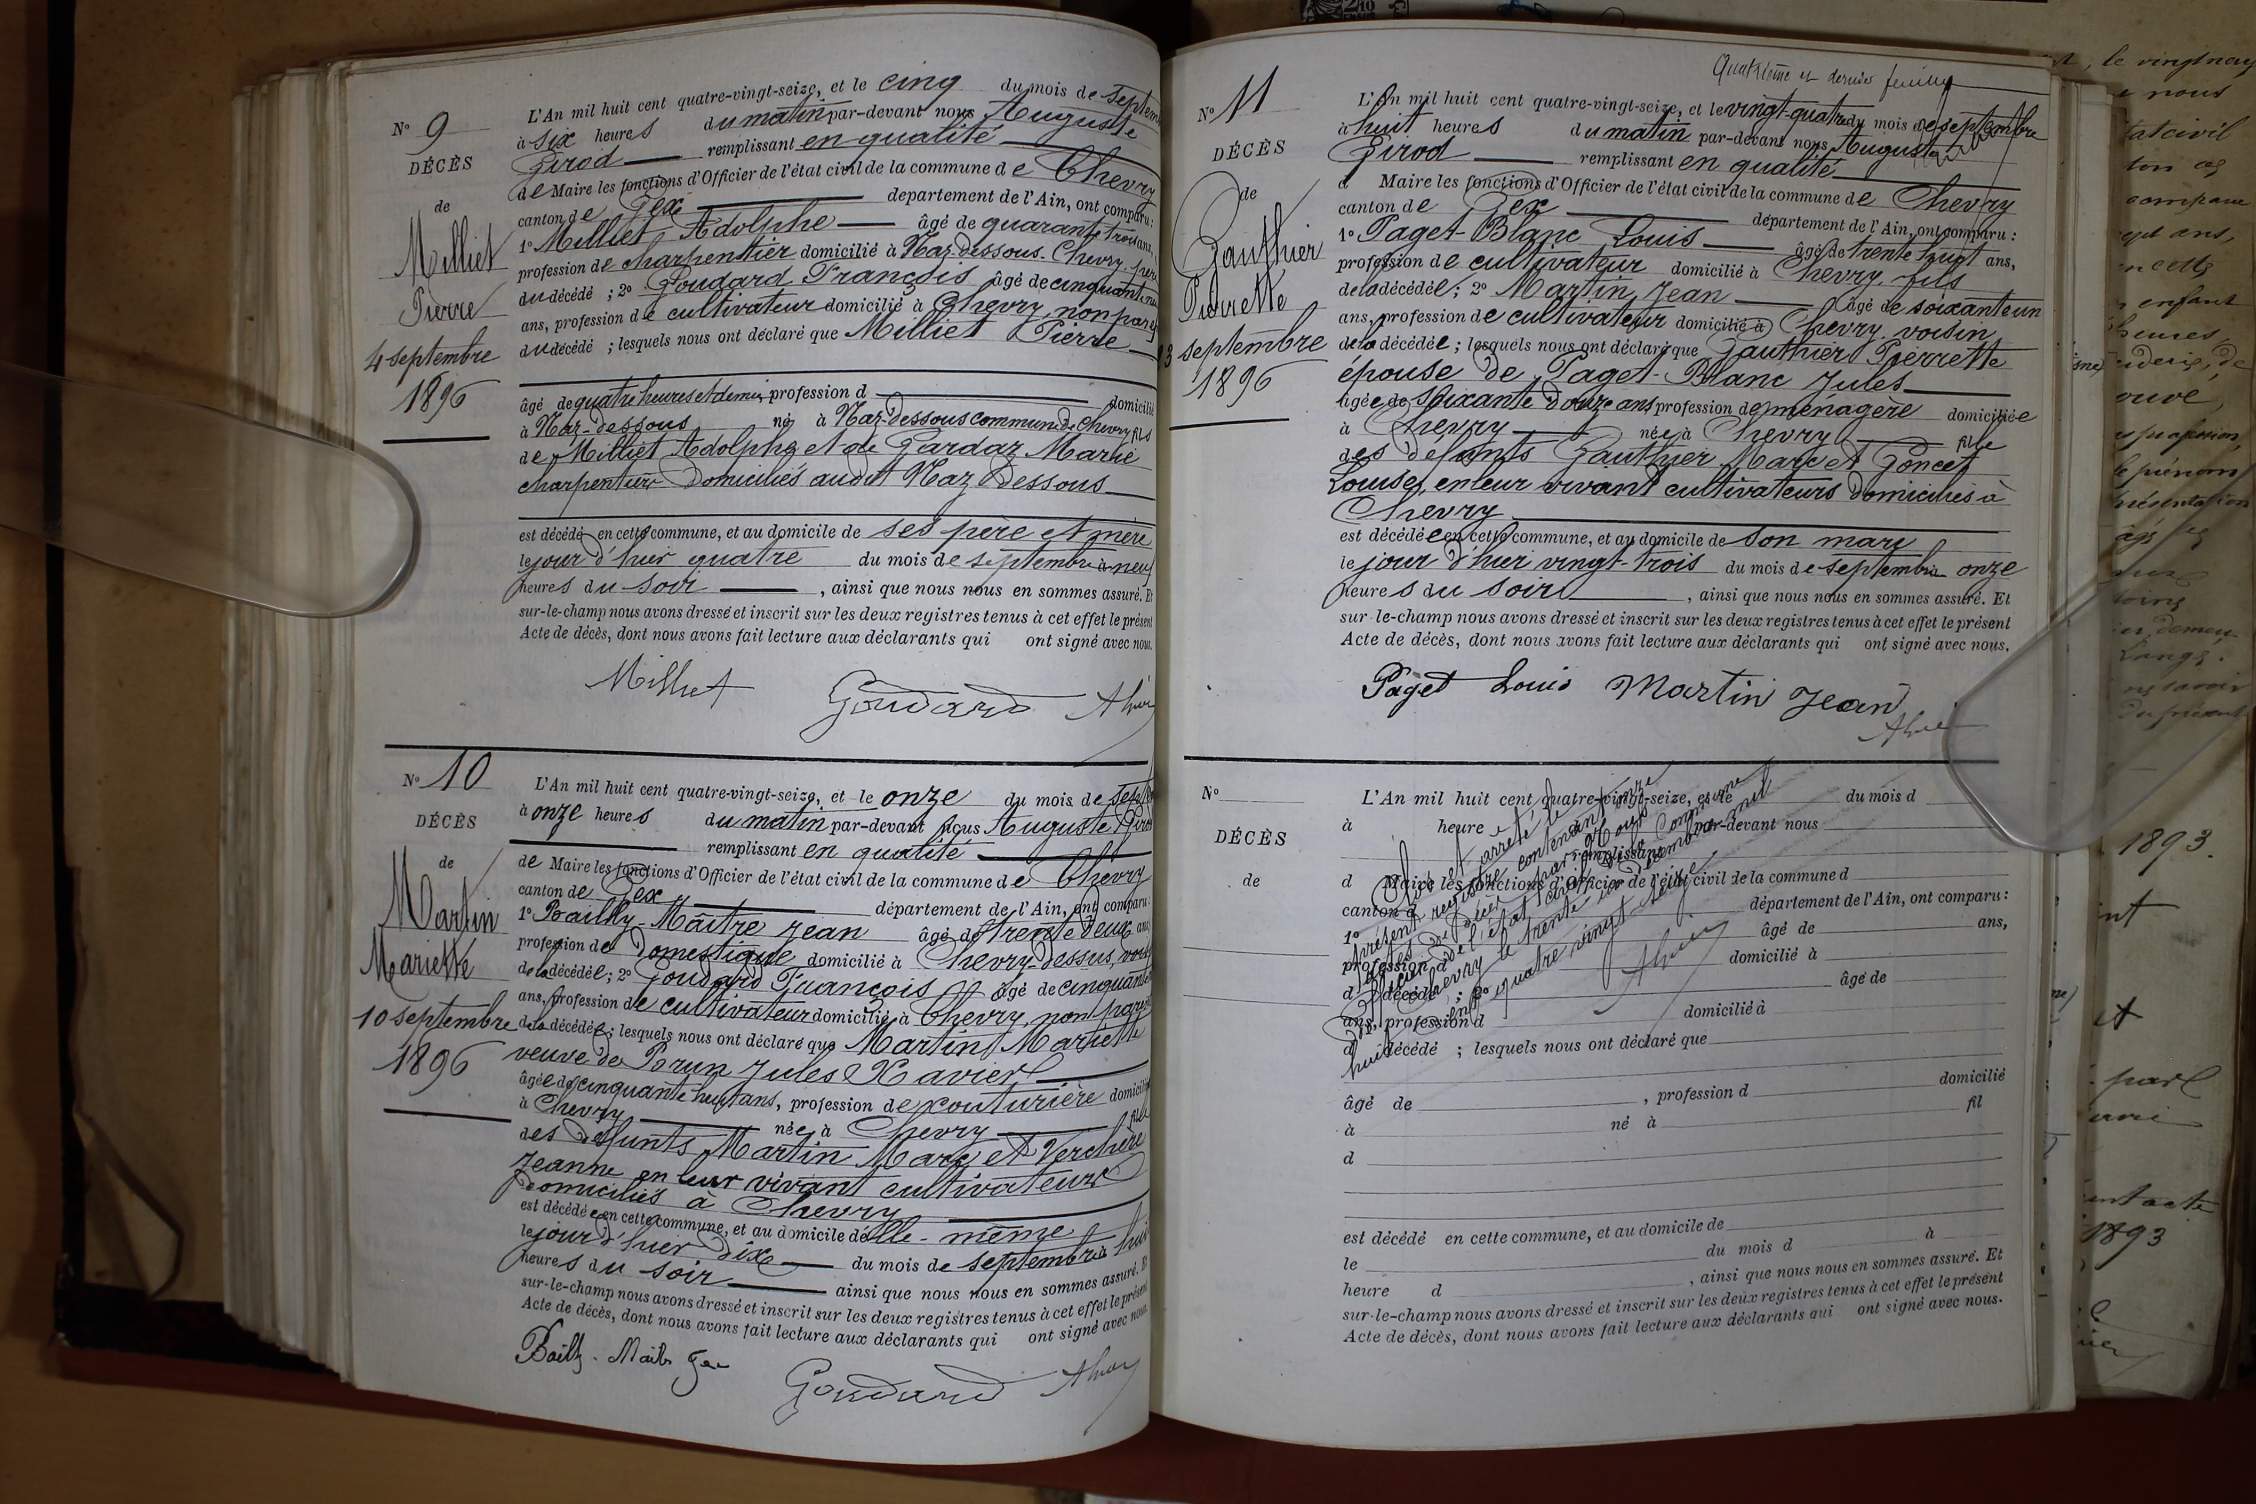 N° 9
DÉCÈS
de
Milliet
Pierre
4 septembre
1896
L'An mil huit cent quatre-vingt-seize, et le cinq du mois de septem
à six heures du matin par-devant nous Auguste
Girod remplissant en qualité
de Maire les fonctions d'Officier de l'état civil de la commune de Chevry
canton de Gex département de l'Ain, ont comparu :
1° Milliet, Adolphe âgé de quarante trois ans,
profession de charpentier domicilié à Naz-dessous. Chevry, père
du décédé ; 2° Goudard François âgé de cinquante
ans, profession de cultivateur domicilié à Chevry, non parent
du décédé ; lesquels nous ont déclaré que Milliet Pierre
âgé de quatre heures et demie, profession d domicilié
à Naz-dessous né à Naz-dessous commune de Chevry fils
de Milliet Adolphe et de Gardaz Marie
charpentier domiciliés audit Naz Dessous
est décédé en cette commune, et au domicile de ses père et mère
le jour d'hier quatre du mois de septembre à neuf
heures du soir , ainsi que nous nous en sommes assuré. Et
sur-le-champ nous avons dressé et inscrit sur les deux registres tenus à cet effet le présent
Acte de décès, dont nous avons fait lecture aux déclarants qui ont signé avec nous.
Milliet Goudard
N° 10
DÉCÈS
de
Martin
Mariette
10 septembre
1896
L'An mil huit cent quatre-vingt-seize, et le onze du mois de sept
à onze heures du matin par-devant nous Auguste Girod
remplissant en qualité
de Maire les fonctions d'Officier de l'état civil de la commune de Chevry
canton de Gex département de l'Ain, ont comparu :
1° Bailly-Maître Jean âgé de trente deux ans
profession de domestique domicilié à Chevry-dessus, voisin
de la décédée ; 2° Goudard François âgé de cinquante
ans, profession de cultivateur domicilié à Chevry, non parent
de la décédée ; lesquels nous ont déclaré que Martin Mariette
veuve de Brun Jules Xavier
âgée de cinquante huit ans, profession de couturière domiciliée
à Chevry née à Chevry fille
des défunts Martin Marc et Verchère
Jeanne en leur vivant cultivateurs
domiciliés à Chevry
est décédée en cette commune, et au domicile d'elle-même
le jour d'hier dix du mois de septembre à huit
heures du soir ainsi que nous nous en sommes assuré. Et
sur-le-champ nous avons dressé et inscrit sur les deux registres tenus à cet effet le présent
Acte de décès, dont nous avons fait lecture aux déclarants qui ont signé avec nous.
Bailly-Maître Jean Goudard
Quatrième et dernier feuillet
N° 11
DÉCÈS
de
Gauthier
Pierrette
23 septembre
1896
L'An mil huit cent quatre-vingt-seize, et le vingt-quatre du mois de septembre
à huit heures du matin par-devant nous Auguste
Girod remplissant en qualité
d Maire les fonctions d'Officier de l'état civil de la commune de Chevry
canton de Gex département de l'Ain, ont comparu :
1° Paget-Blanc Louis âgé de trente huit ans,
profession de cultivateur domicilié à Chevry, fils
de la décédée ; 2° Martin, Jean âgé de soixante un
ans, profession de cultivateur domicilié à Chevry, voisin
de la décédée ; lesquels nous ont déclaré que Gauthier Pierrette
épouse de Paget-Blanc Jules
âgée de soixante douze ans profession de ménagère domiciliée
à Chevry née à Chevry fille
des défunts Gauthier Marc et Poncet
Louise, en leur vivant cultivateurs domiciliés à
Chevry
est décédée en cette commune, et au domicile de son mari
le jour d'hier vingt-trois du mois de septembre onze
heures du soir , ainsi que nous nous en sommes assuré. Et
sur-le-champ nous avons dressé et inscrit sur les deux registres tenus à cet effet le présent
Acte de décès, dont nous avons fait lecture aux déclarants qui ont signé avec nous.
Paget Louis Martin Jean
N°
DÉCÈS
de
L'An mil huit cent quatre-vingt-seize, et le du mois d
à heure par-devant nous
remplissant
d Maire les fonctions d'Officier de l'état civil de la commune d
canton d département de l'Ain, ont comparu :
1° âgé de ans,
profession d domicilié à
d décédé ; 2° âgé de
ans, profession d domicilié à
d décédé ; lesquels nous ont déclaré que
âgé de , profession d domicilié
à né à fil
d
est décédé en cette commune, et au domicile de
le du mois d à
heure d , ainsi que nous nous en sommes assuré. Et
sur-le-champ nous avons dressé et inscrit sur les deux registres tenus à cet effet le présent
Acte de décès, dont nous avons fait lecture aux déclarants qui ont signé avec nous.
Clos et arrêté le
présent registre contenant onze
actes de décès par Nous
officier de l'état civil de la commune
de Chevry le trente un Décembre mil
huit cent quatre vingt seize
le vingt neuf
nous
état civil
enfant
heures
profession
prénom
présentation
1893.
et
acte
1893